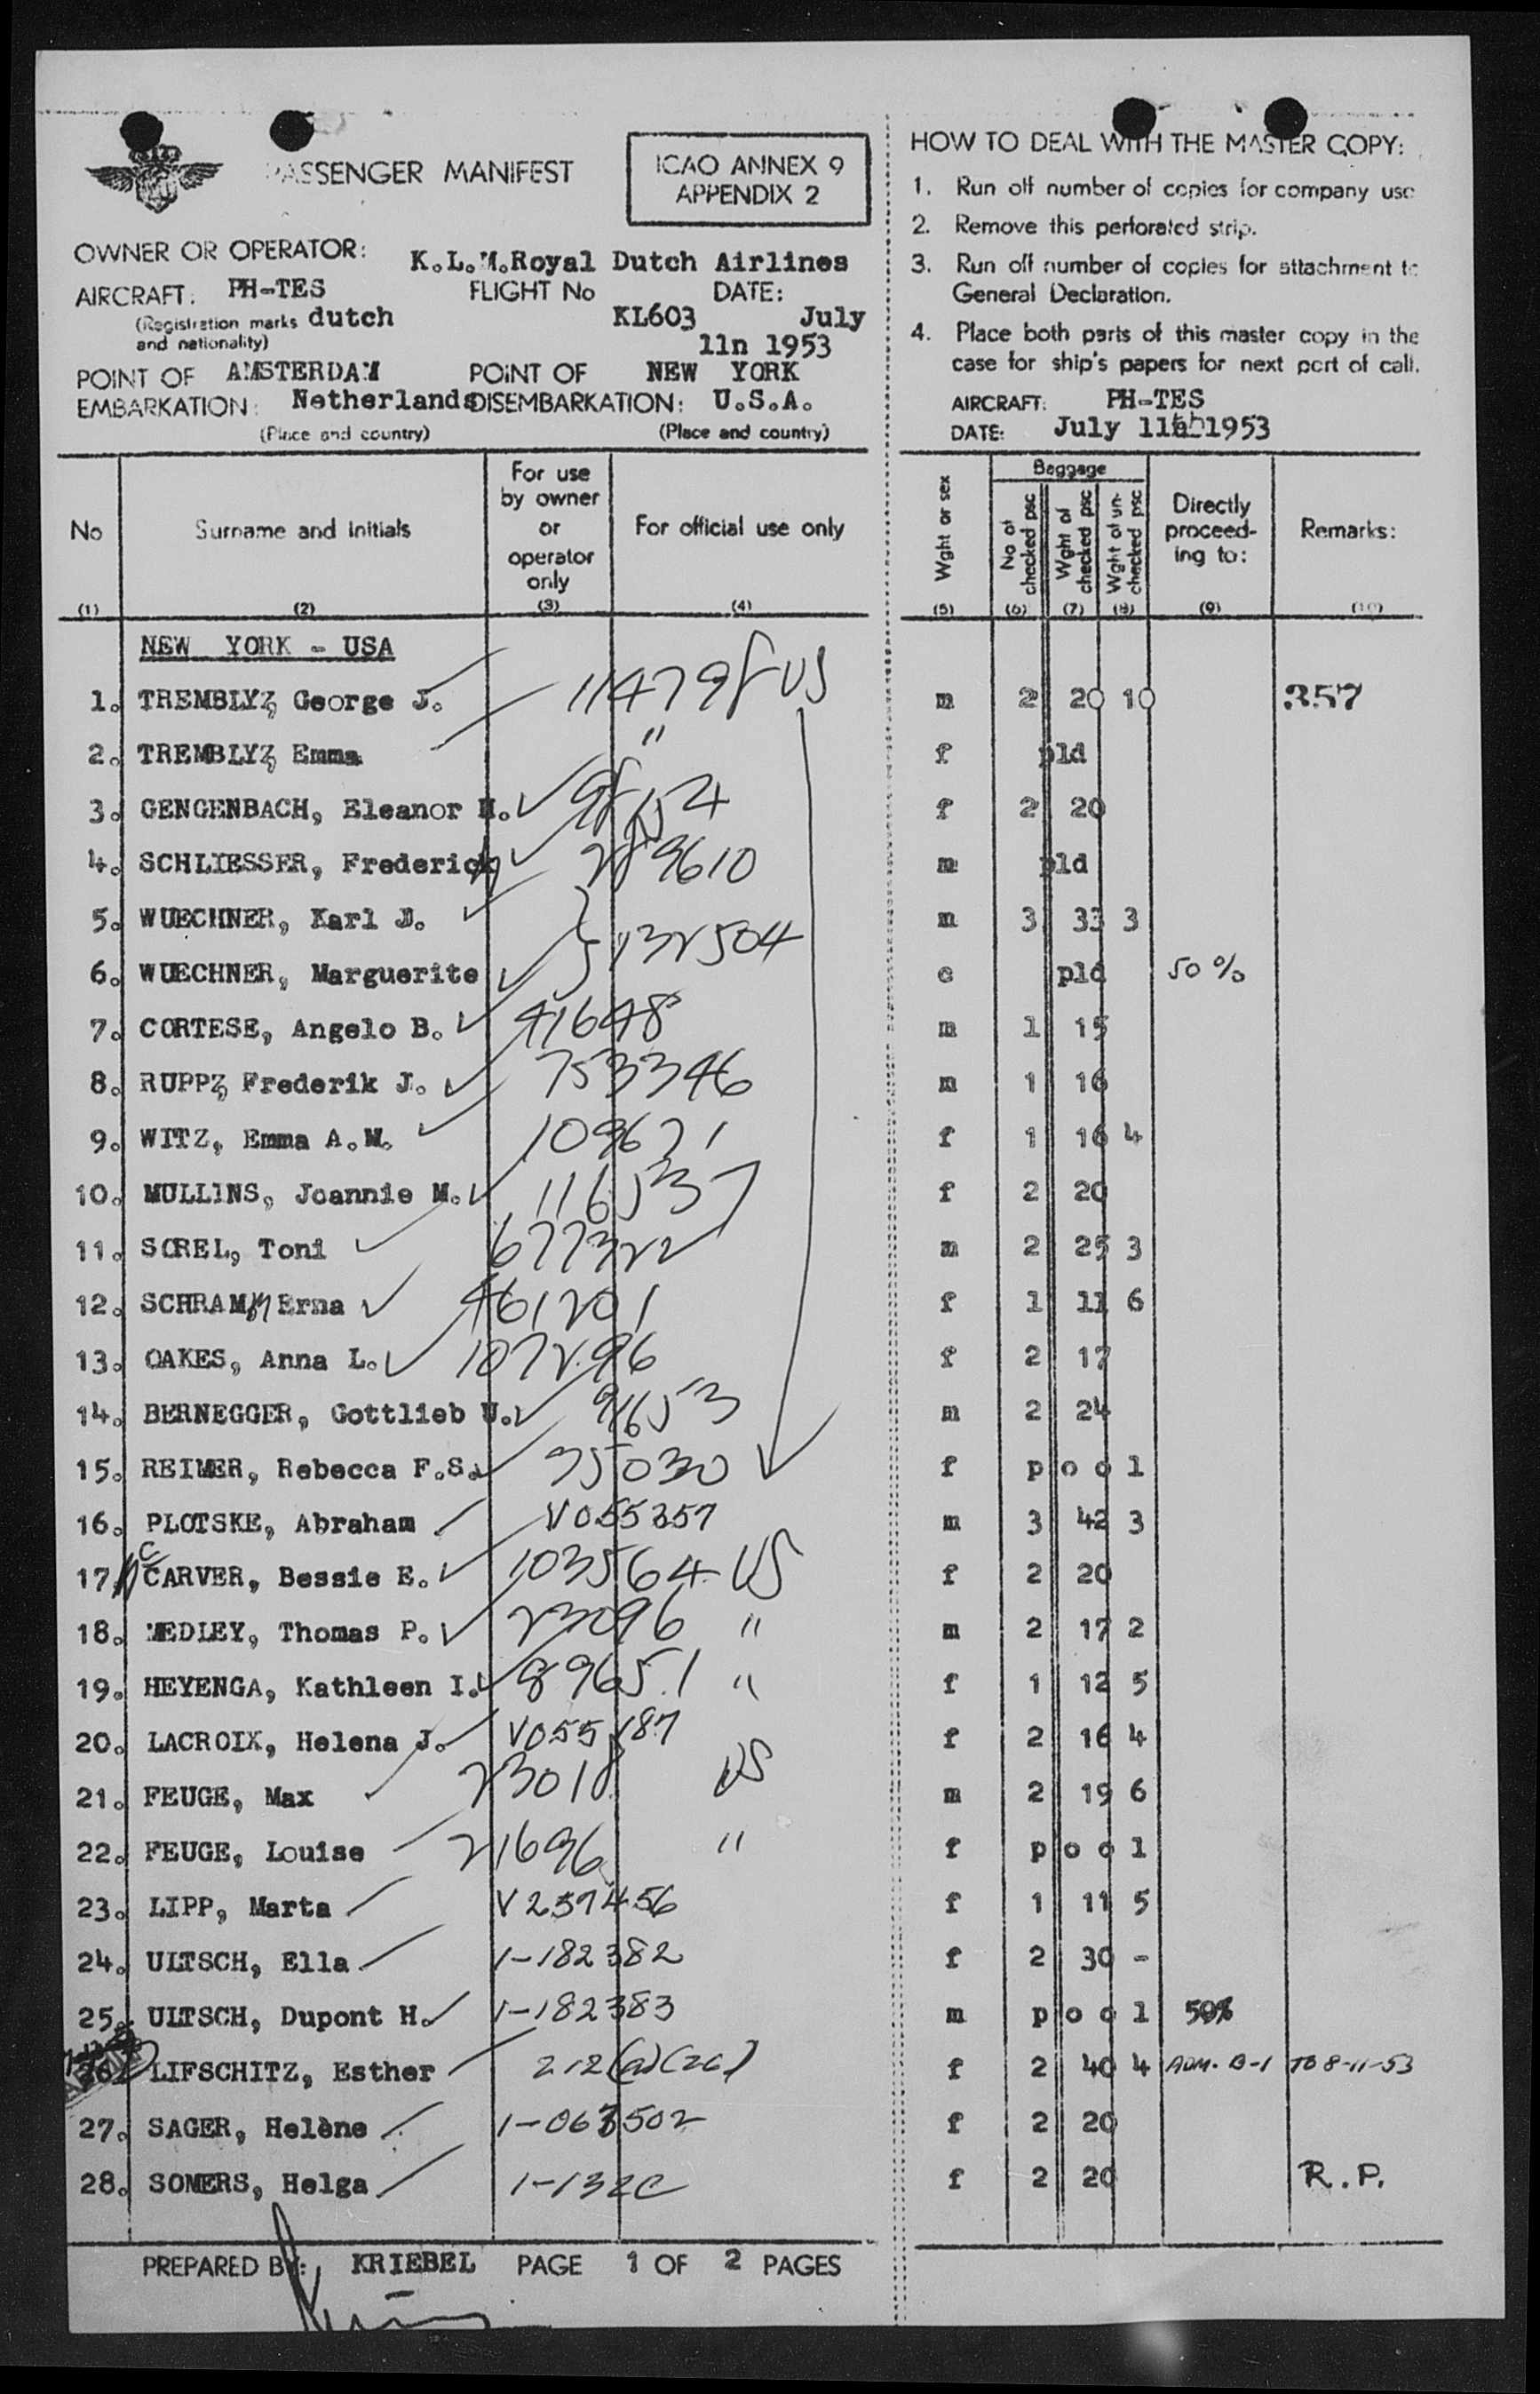 PASSENGER MANIFEST
ICAO ANNEX 9
APPENDIX 2
OWNER OR OPERATOR: K.L.M.Royal Dutch Airlines
AIRCRAFT: PH-TES FLIGHT No DATE:
(Registration marks and nationality) dutch KL603 July
11n 1953
POINT OF EMBARKATION: AMSTERDAM Netherlands POINT OF DISEMBARKATION: NEW YORK U.S.A.
(Place and country) (Place and country)
No Surname and initials For use by owner or operator only For official use only
(1) (2) (3) (4)
NEW YORK - USA
1. TREMBLY, George J. US
2. TREMBLY, Emma "
3. GENGENBACH, Eleanor
4. SCHLIESSER, Frederick
5. WUECHNER, Karl J.
6. WUECHNER, Marguerite 132504
7. CORTESE, Angelo B. 41648
8. RUPP, Frederik J. 753346
9. WITZ, Emma A.M. 109671
10. MULLINS, Joannie M. 116537
11. SOREL, Toni 677322
12. SCHRAMM Erna 461201
13. OAKES, Anna L. 107296
14. BERNEGGER, Gottlieb 91653
15. REIMER, Rebecca F.S. 35030
16. PLOTSKE, Abraham V055357
17. CARVER, Bessie E. 103564 US
18. MEDLEY, Thomas P. 23096 "
19. HEYENGA, Kathleen I. 89651 "
20. LACROIX, Helena J. V055187
21. FEUGE, Max 23018 US
22. FEUGE, Louise 21696 "
23. LIPP, Marta V257456
24. ULTSCH, Ella 1-182382
25. ULTSCH, Dupont H. 1-182383
26 LIFSCHITZ, Esther
27. SAGER, Helène 1-063502
28. SOMERS, Helga 1-132C
PREPARED BY: KRIEBEL PAGE 1 OF 2 PAGES
HOW TO DEAL WITH THE MASTER COPY:
1. Run off number of copies for company use
2. Remove this perforated strip.
3. Run off number of copies for attachment to
General Declaration.
4. Place both parts of this master copy in the
case for ship's papers for next port of call.
AIRCRAFT: PH-TES
DATE: July 11th 1953
Wght or sex Baggage Directly proceeding to: Remarks:
No of checked psc Wght of checked psc Wght of unchecked psc
(5) (6) (7) (8) (9) (10)
m 2 20 10 357
f pld
f 2 20
m pld
m 3 33 3
c pld 50 %
m 1 15
m 1 16
f 1 16 4
f 2 20
m 2 25 3
f 1 11 6
f 2 17
m 2 24
f pool
m 3 42 3
f 2 20
m 2 17 2
f 1 12 5
f 2 16 4
m 2 19 6
f pool
f 1 11 5
f 2 30 -
m pool 50%
f 2 40 4 ADM. B-1 TO 8-11-53
f 2 20
f 2 20 R.P.